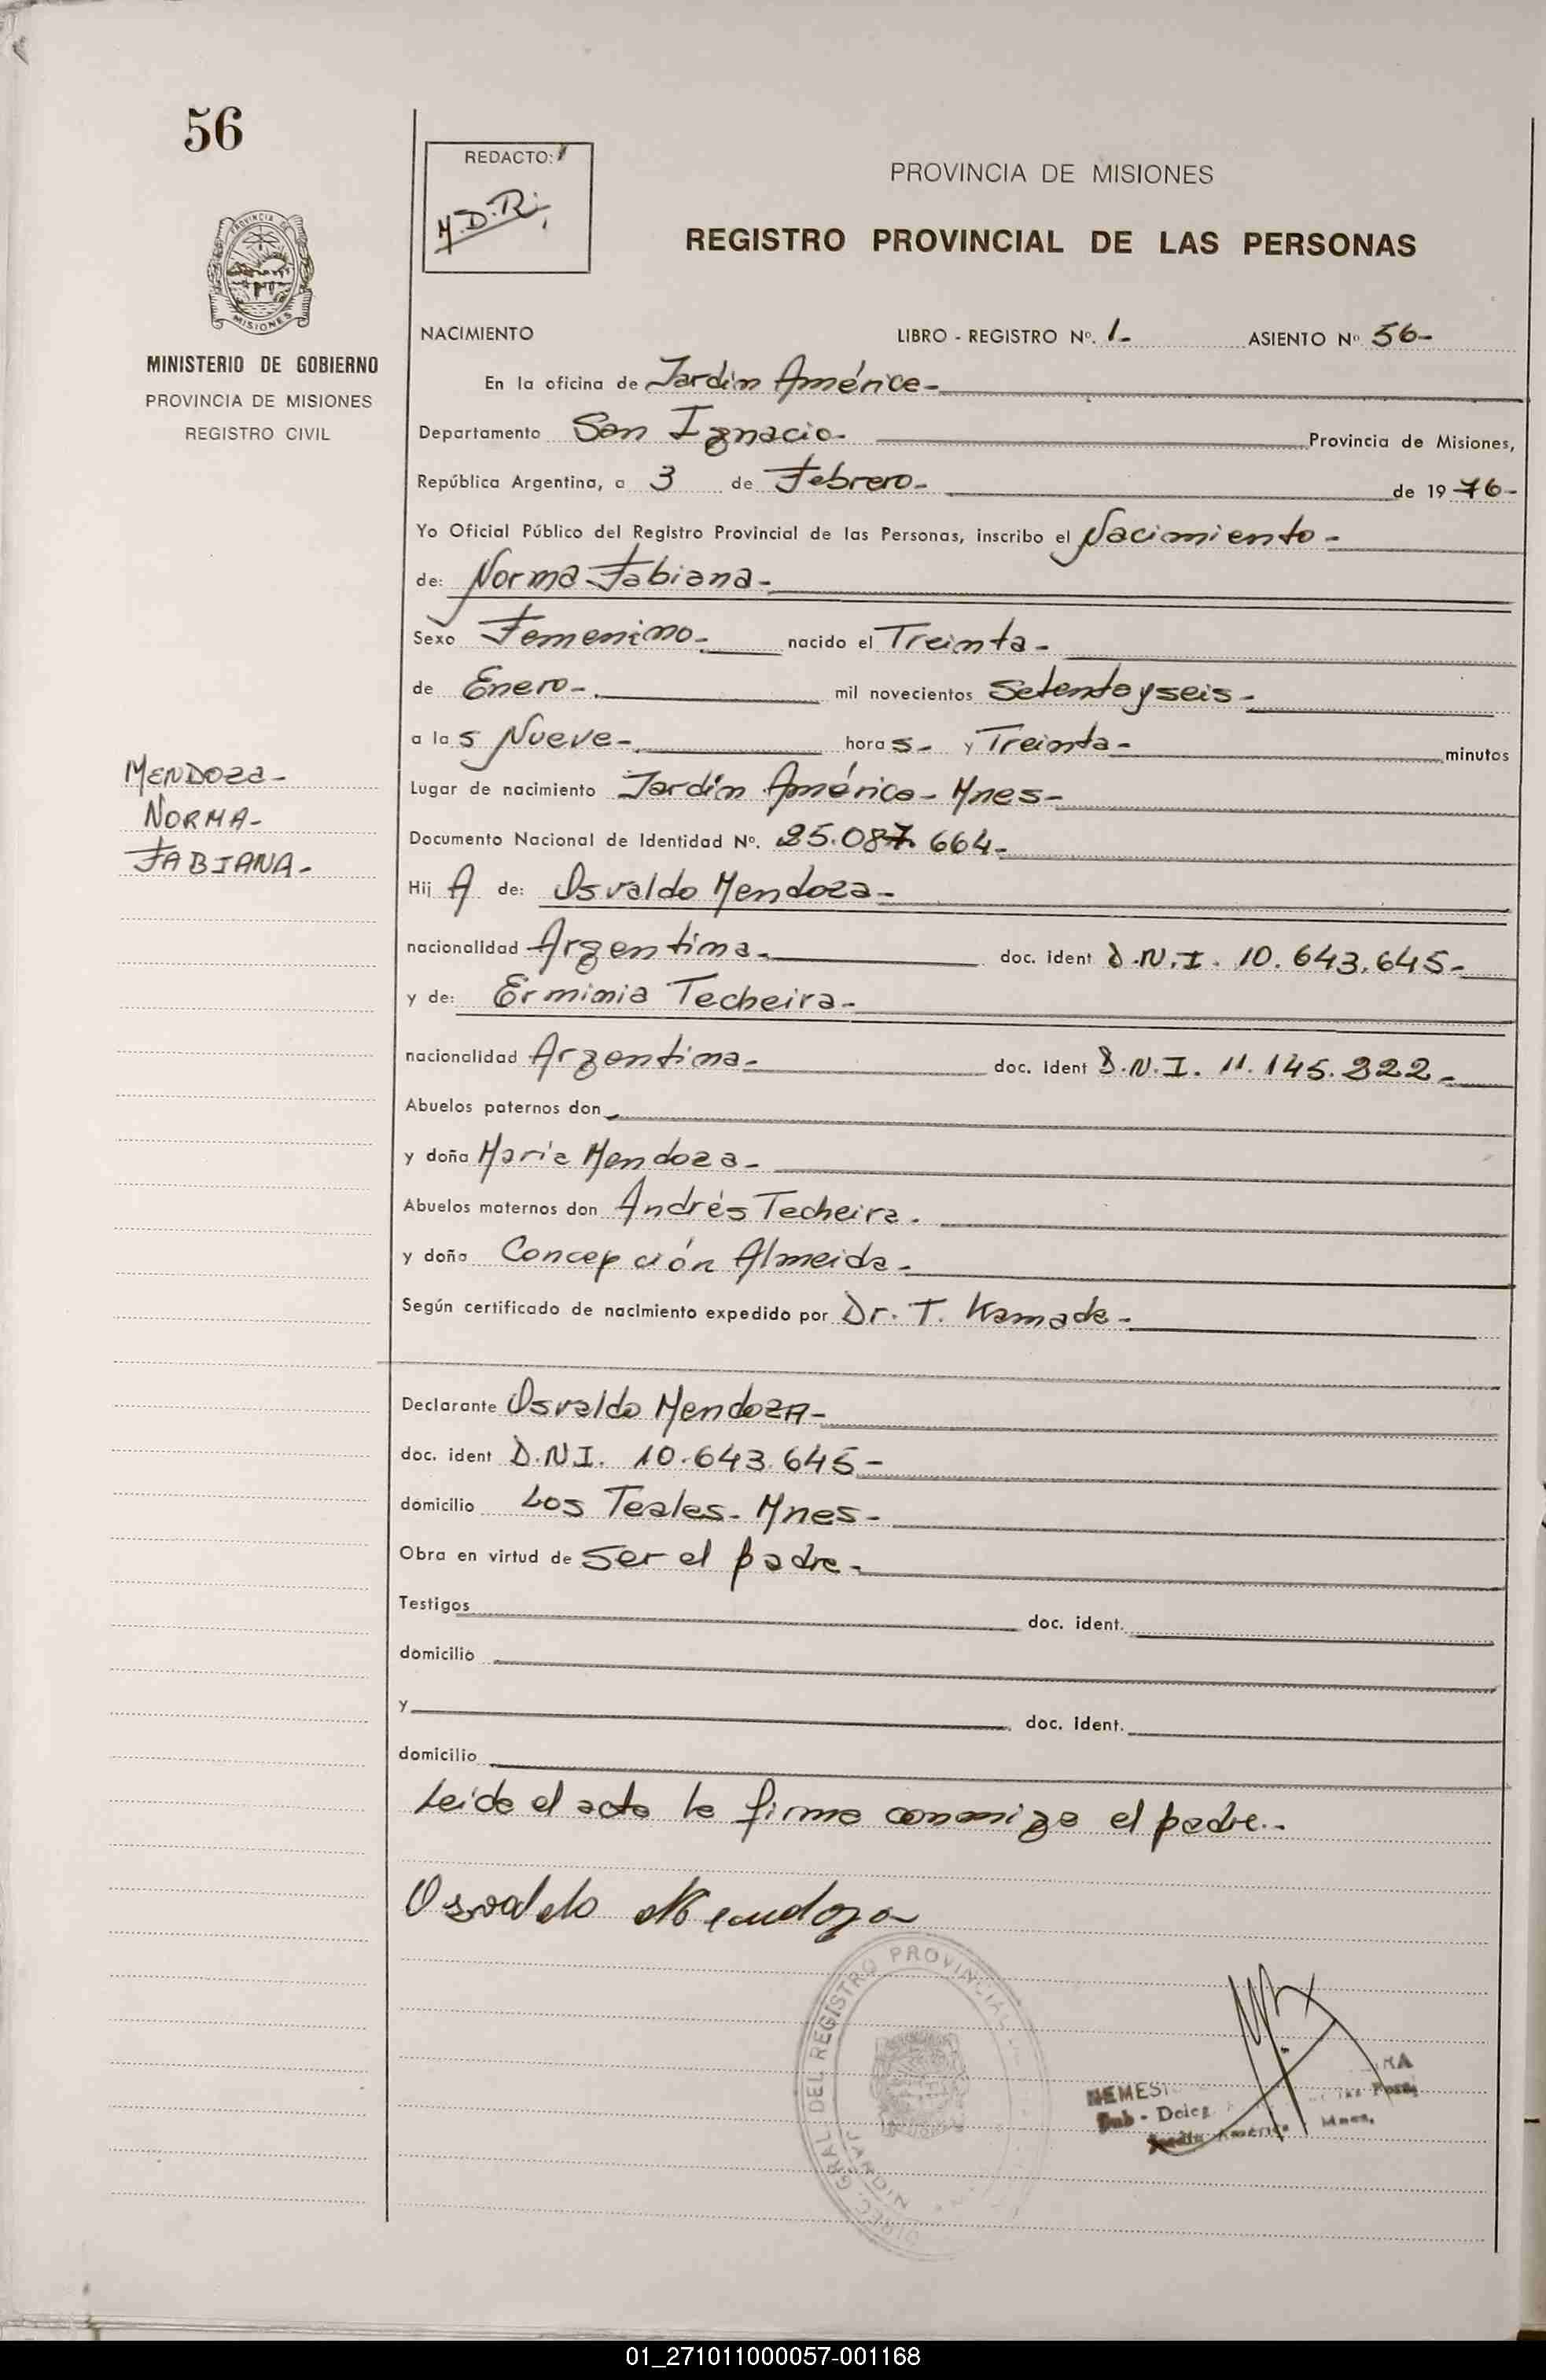 56
REDACTO:
M.D.R.
PROVINCIA DE MISIONES
REGISTRO PROVINCIAL DE LAS PERSONAS
PROVINCIA DE
MISIONES
MINISTERIO DE GOBIERNO
PROVINCIA DE MISIONES
REGISTRO CIVIL
NACIMIENTO LIBRO - REGISTRO Nº. 1- ASIENTO Nº 56-
En la oficina de Jardín América-
Departamento San Ignacio- Provincia de Misiones,
República Argentina, a 3 de Febrero- de 19 76-
Yo Oficial Público del Registro Provincial de las Personas, inscribo el Nacimiento-
de: Norma Fabiana-
Sexo Femenino- nacido el Treinta-
de Enero- mil novecientos Setentayseis-
a las Nueve- horas- y Treinta- minutos
MENDOZA-
NORMA-
FABIANA-
Lugar de nacimiento Jardín América- Mnes-
Documento Nacional de Identidad Nº. 25.087.664-
Hij A de: Osvaldo Mendoza-
nacionalidad Argentina- doc. ident D.N.I. 10.643.645-
y de: Erminia Techeira-
nacionalidad Argentina- doc. ident D.N.I. 11.145.222-
Abuelos paternos don
y doña María Mendoza-
Abuelos maternos don Andrés Techeira.
y doña Concepción Almeida-
Según certificado de nacimiento expedido por Dr. T. Kamada-
Declarante Osvaldo Mendoza-
doc. ident D.N.I. 10.643.645-
domicilio Los Teales- Mnes-
Obra en virtud de ser el padre-
Testigos doc. ident.
domicilio
y doc. ident.
domicilio
Leida el acta la firma conmigo el padre.-
Osvaldo Mendoza
DIREC. GRAL. DEL REGISTRO PROVINCIAL
JARDIN
NEMESI
Sub - Deleg
Jardín América Mnes.
01_271011000057-001168